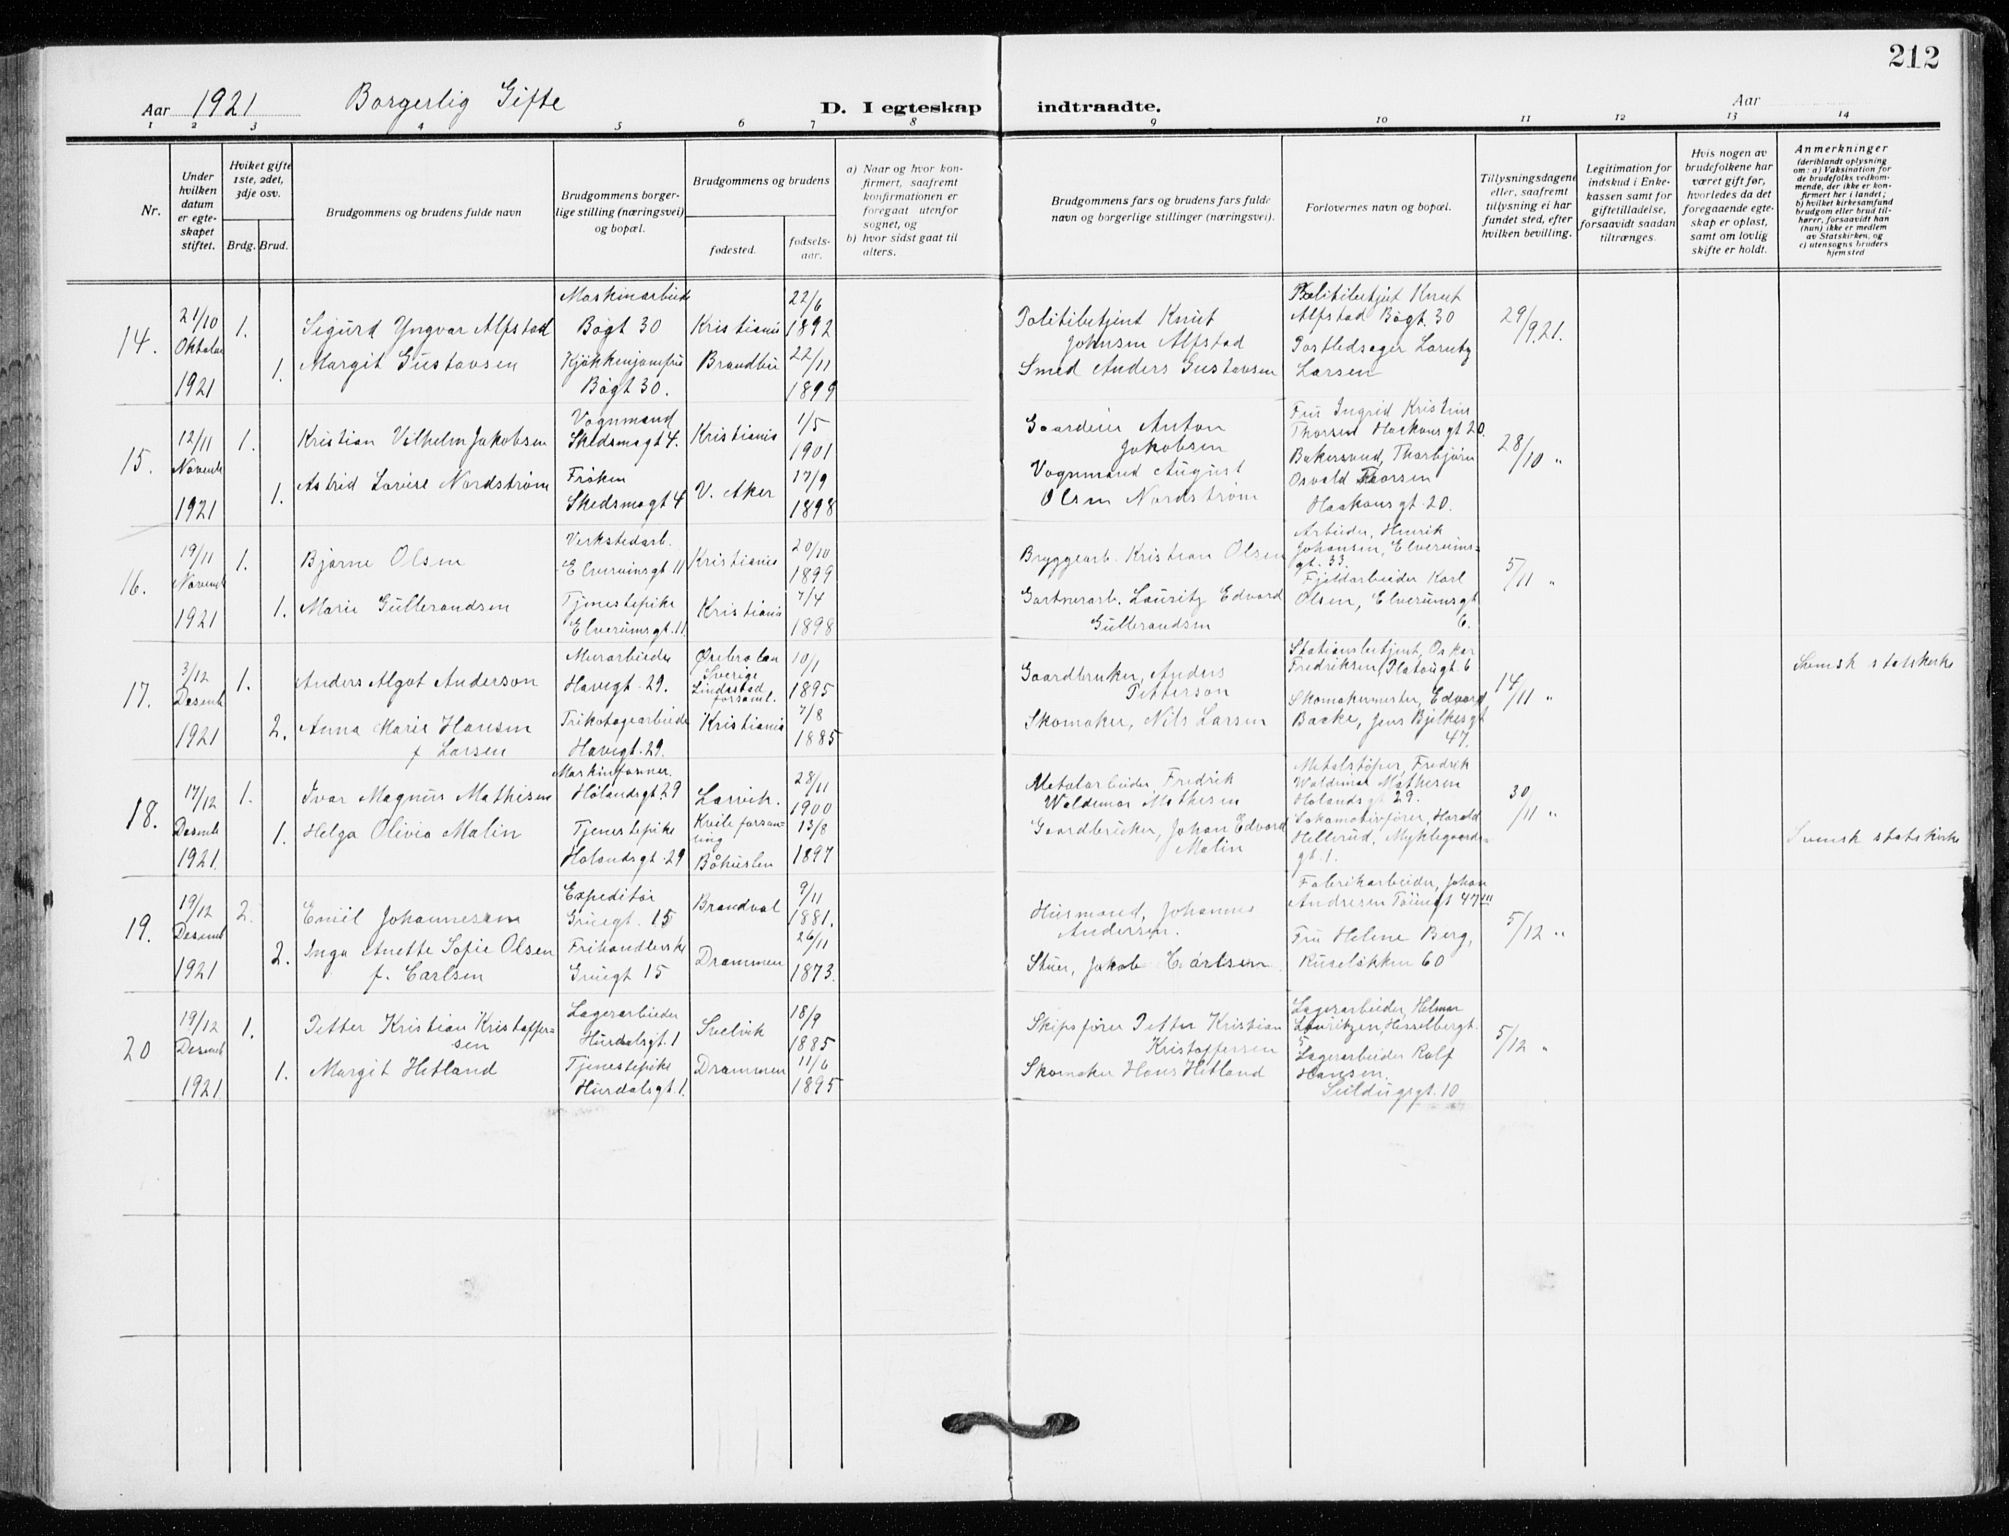 212
Aar 1921 Borgerlig Gifte D. I egteskap indtraadte. Aar
1 2 3 4 5 6 7 8 9 10 11 12 13 14
Nr.
Under hvilken datum er egteskapet stiftet.
Hviket gifte 1ste, 2det, 3dje osv.
Brdg. Brud.
Brudgommens og brudens fulde navn
Brudgommens borgerlige stilling (næringsvei) og bopæl.
Brudgommens og brudens
fødested.
fødselsaar.
a) Naar og hvor konfirmert, saafremt konfirmationen er foregaat utenfor sognet, og
b) hvor sidst gaat til alters.
Brudgommens fars og brudens fars fulde navn og borgerlige stillinger (næringsvei).
Forlovernes navn og bopæl.
Tillysningsdagene eller, saafremt tillysning ei har fundet sted, efter hvilken bevilling.
Legitimation for indskud i Enkekassen samt for giftetilladelse, forsaavidt saadan tiltrænges.
Hvis nogen av brudefolkene har været gift før, hvorledes da det foregaaende egteskap er opløst, samt om lovlig skifte er holdt.
Anmerkninger
(deriblandt oplysning om: a) Vaksination for de brudefolks vedkommende, der ikke er konfirmert her i landet; b) hvilket kirkesamfund brudgom eller brud tilhører, forsaavidt han (hun) ikke er medlem av Statskirken, og c) utensogns bruders hjemsted
14. 21/10 Oktober 1921
1. Sigurd Yngvar Alfstad
Maskinarbeid Bøgt 30
Kristiania 22/6 1892
1. Margit Gustavsen
Kjøkkenjomfru Bøgt 30.
Brandbu 22/11 1899
Politibetjent Knut Johnsen Alfstad
Smed Anders Gustavsen
Politibetjent Knut Alfstad Bøgt. 30
Postledsager Larsen
29/9 21.
15. 12/11 Novemb 1921
1. Kristian Vilhelm Jakobsen
Vognmand Skedsmogt 4.
Kristiania 1/5 1901
1. Astrid Lovise Nordstrøm
Frøken Skedsmogt 4
V. Aker 17/9 1898
Gaardeier Anton Jakobsen
Vognmand August Olsen Nordstrøm
Fru Ingrid Kristine Thorsen Haakonsgt 20.
Bakersvend, Thorbjørn Osvald Thorsen Haakonsgt. 20.
28/10 "
16. 19/11 Novemb 1921
1. Bjarne Olsen
Verkstedarb. Elverumsgt 11
Kristiania 20/10 1899
1. Marie Gulbrandsen
Tjenestepike Elverumsgt. 11
Kristiania 7/4 1898
Bryggearb. Kristian Olsen
Gartnerarb. Lauritz Edvard Gulbrandsen
Arbeider, Henrik Johansen, Elverumsgt. 33.
Fjeldarbeider Karl Olsen, Elverumsgt 6.
5/11 "
17. 3/12 Desemb 1921
1. Anders Algot Anderson
Murarbeider Havegt. 29.
Ørebro län Sverige Lindesbad forsaml. 10/1 1895
2. Anna Marie Hansen f Larsen
Trikotagearbeide Havegt. 29.
Kristiania 7/8 1885
Gaardbruker, Anders Petterson
Skomaker, Nils Larsen
Stationsbetjent, Oskar Fredriksen, Platougt 6
Skomakermester, Edvard Backe, Jens Bjelkesgt 47.
14/11 "
Svensk statskirke
18. 17/12 Desemb 1921.
1. Ivar Magnus Mathisen
Maskinformer. Hølandsgt 29
Larvik. 28/11 1900
1. Helga Olivia Malin
Tjenestepike Hølandsgt. 29
Kville forsamling Bohuslen 13/8 1897
Metalarbeider, Fredrik Waldemar Mathisen
Gaardbruker, Johan Edvard Malin
Metalstøper, Fredrik Waldemar Mathisen Hølandsgt 29.
Lokomotivfører, Harald Hellerud, Myklegaardsgt. 1.
30/11 "
Svensk statskirke
19. 19/12 Desemb 1921
2. Emil Johannesen
Expeditør Gruegt. 15
Brandval 9/11 1881.
2. Inga Anette Sofie Olsen f. Carlsen
Frihandlerske Gruegt 15
Drammen 26/11 1873.
Husmand, Johannes Andersen.
Stuer, Jakob Carlsen
Fabrikarbeider, Johan Andresen Tøiengt 47 III
Fru Helene Berg, Ruseløkken 60
5/12 "
20 19/12 Desemb 1921
1. Petter Kristian Kristoffersen
Lagerarbeider Hurdalsgt. 1
Svelvik 18/9 1885
1. Margit Hetland
Tjenestepike Hurdalsgt. 1.
Drammen 11/6 1895
Skipsfører Petter Kristian Kristoffersen
Skomaker Hans Hetland
Lagerarbeider, Helmar Lauritzen, Hesselbergt. 5
Lagerarbeider Rolf Hansen. Seildugsgt. 10
5/12 "